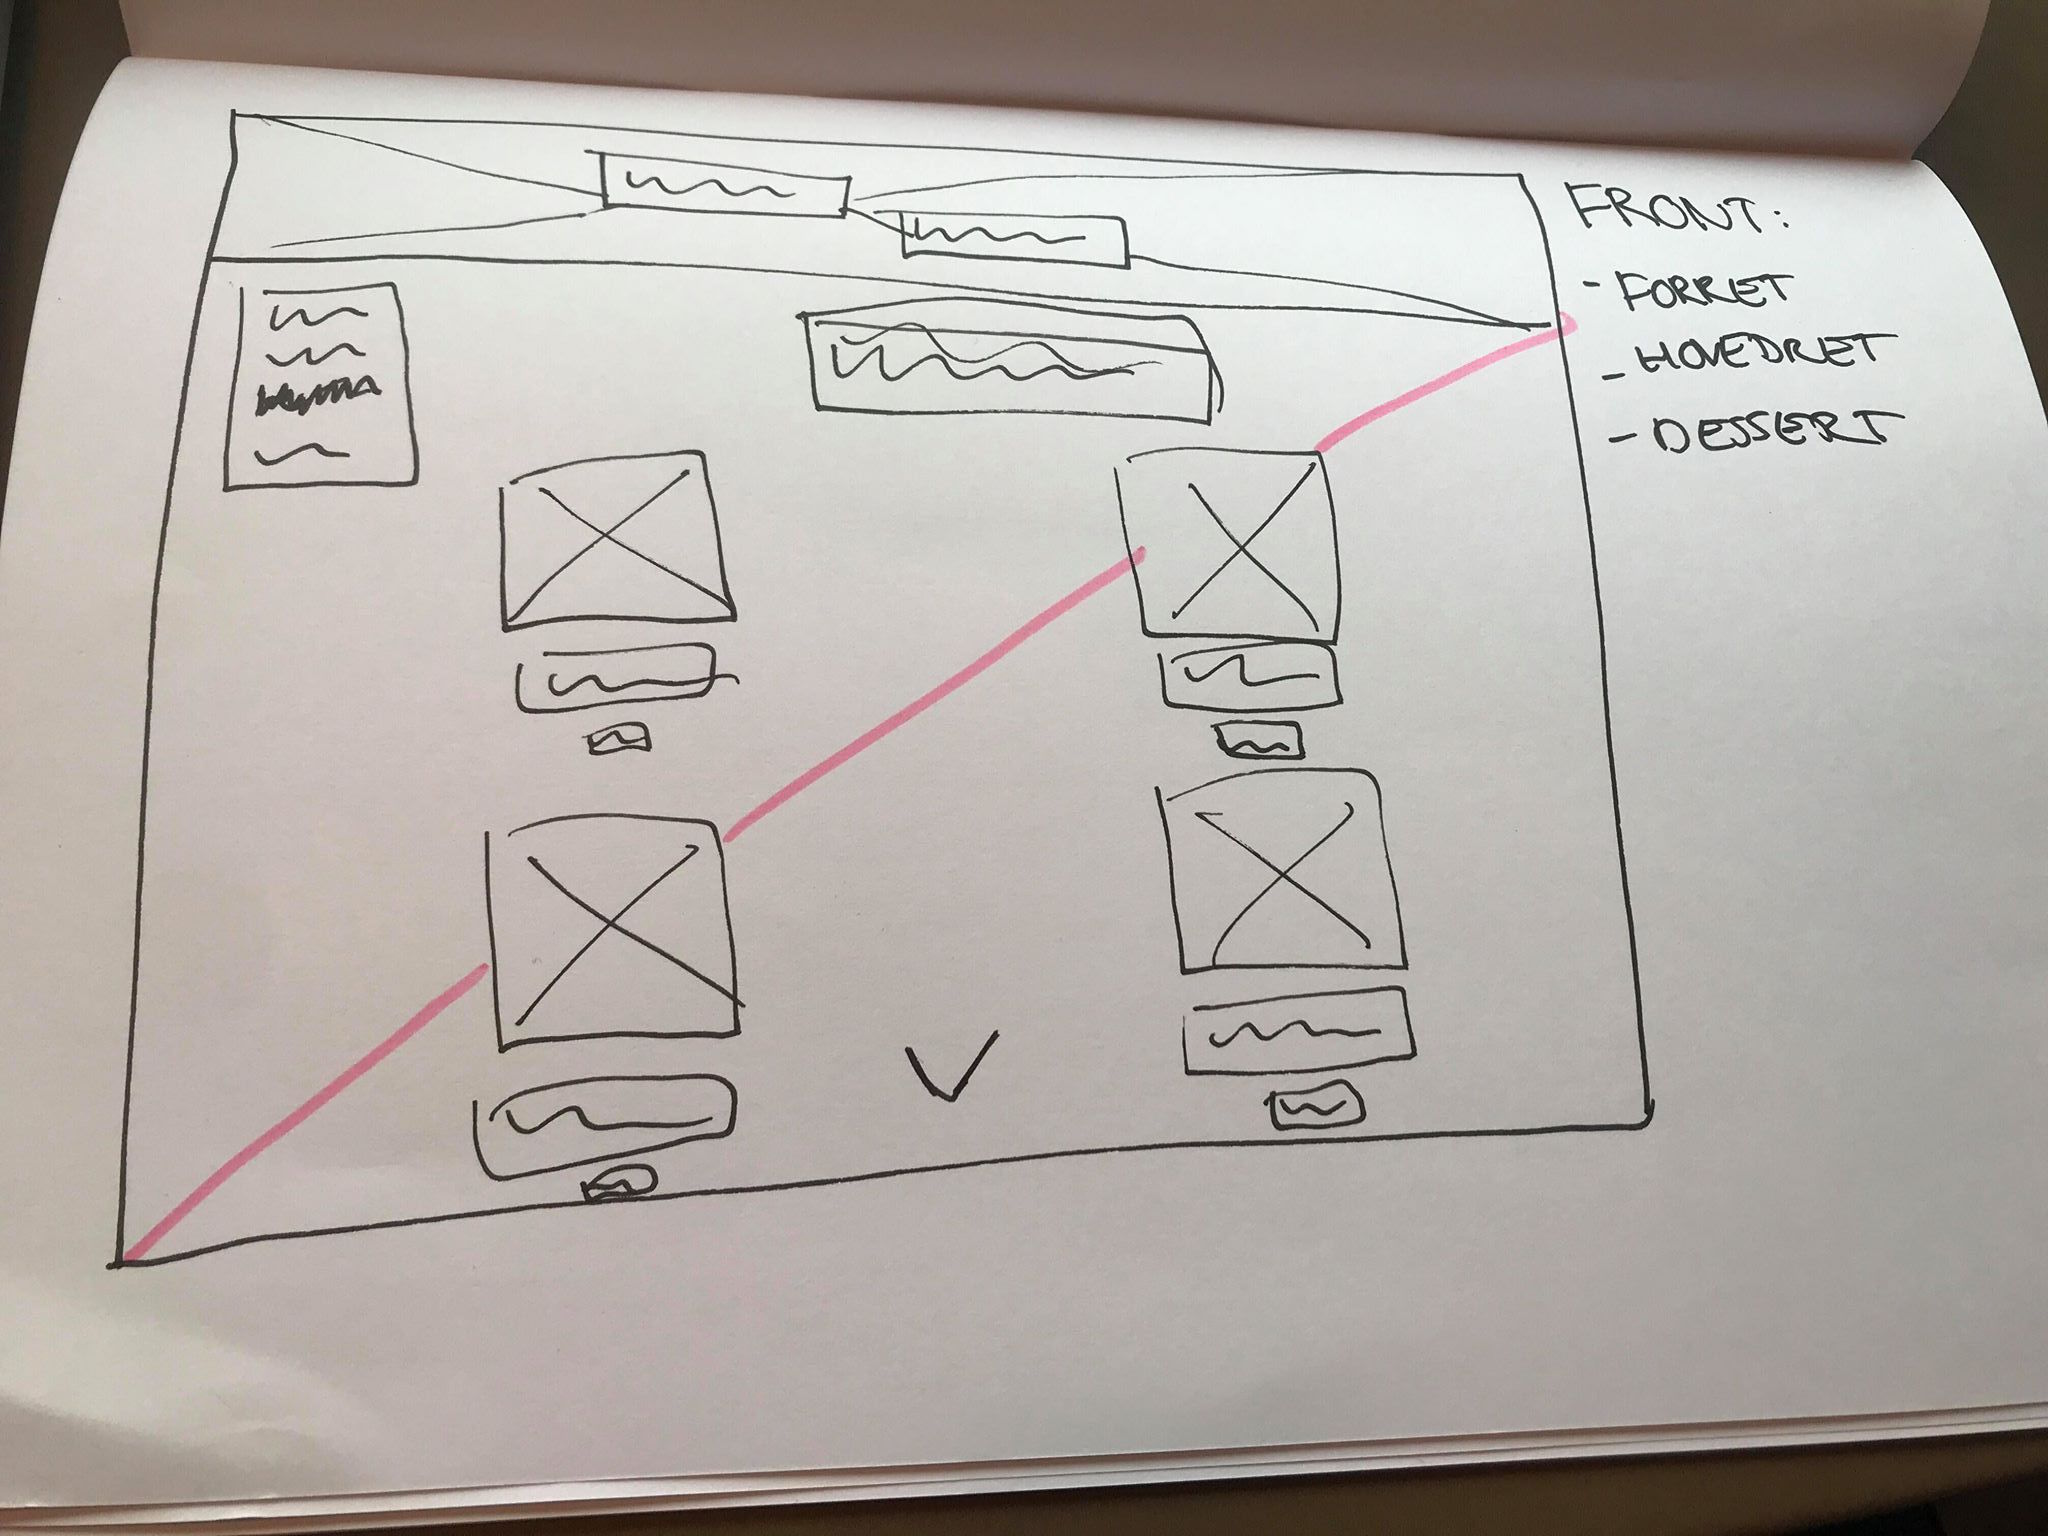 FRONT:
- FORRET
- HOVEDRET
- DESSERT